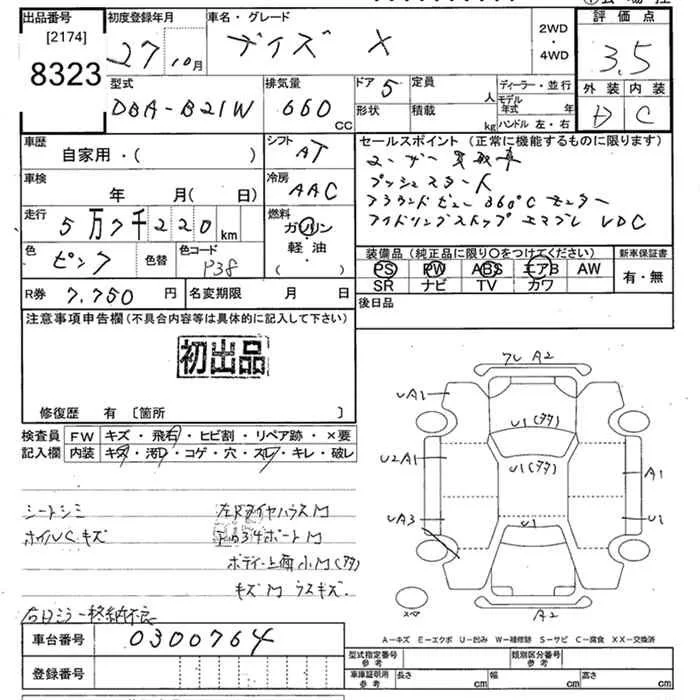 出品番号
[2174]
8323
初度登録年月
27年10月
車名・グレード
デイズ X
2WD
・
4WD
評価点
3.5
外装 内装
D C
型式
DBA-B21W
排気量
660 CC
ドア 5
形状
定員 人
積載 kg
ディーラー・並行
モデル年式 年
ハンドル 左・右
車歴
自家用・( )
シフト
AT
車検
年 月( 日)
冷房
AAC
走行
5万7千220km
燃料
ガソリン
軽油
( )
色
ピンク
色替
色コード
P38
R券 7,750 円
名変期限 月 日
セールスポイント (正常に機能するものに限ります)
ユーザー買取車
プッシュスタート
アラウンドビュー 360°C モニター
アイドリングストップ エマブレ VDC
装備品 (純正品に限り〇をつけてください)
PS PW ABS エアB AW
SR ナビ TV カワ
新車保証書
有・無
後日品
注意事項申告欄 (不具合内容等は具体的に記入して下さい)
初出品
修復歴 有 〔箇所 〕
検査員記入欄
FW キズ・飛石・ヒビ割・リペア跡・×要
内装 キズ・汚れ・コゲ・穴・スレ・キレ・破レ
シートシミ
ホイルCキズ
左Rタイヤハウス M
ボディ上面小M(多)
キズM ウスキズ
フレ A2
UA1
U1(多)
U2A1
U1(多)
A1
UA3
U1
U1
スペア
A2
A－キズ E－エクボ U－凹み W－補修跡 S－サビ C－腐食 XX－交換済
車台番号 0300764
登録番号
型式指定番号 参考
類別区分番号 参考
車庫証明用 参考
長さ cm
幅 cm
高さ cm